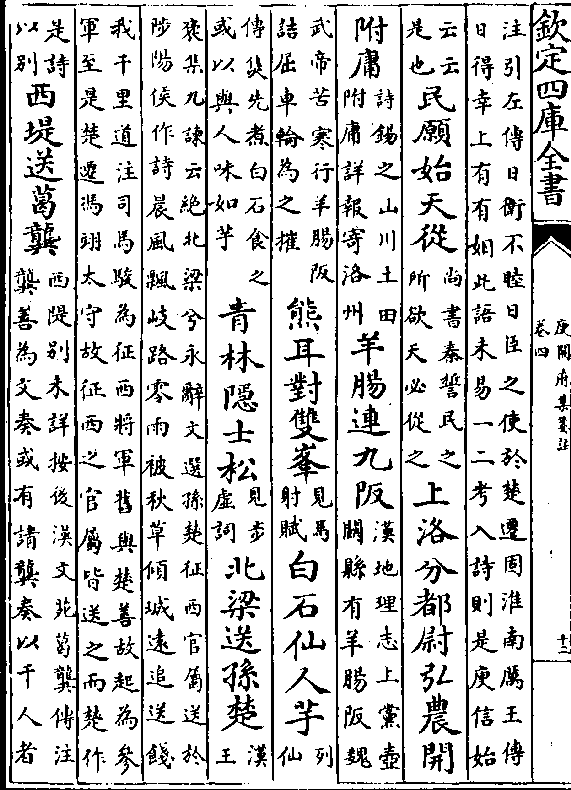 欽定四庫全書
庾開府集箋註
卷四
注引左傳日衛不睦日臣之使於楚遷固淮南厲王傳
日得幸上有有如此語未易一二考入詩則是庾信始
云云
是也
民願始天從
尚書泰誓民之
所欲天必從之
上洛分都尉弘農開
附庸
詩錫之山川土田
附庸詳報寄洛州
羊腸連九阪
漢地理志上黨壺
關縣有羊腸阪魏
武帝苦寒行羊腸阪
詰屈車輪為之摧
熊耳對雙峯
見馬
射賦
白石仙人芋
列
仙
傳焦先煮白石食之
或以與人味如芋
青林隱士松
見步
虛詞
北梁送孫楚
漢
王
襃集九諫云絶北梁兮永辭文選孫楚征西官屬送於
陟陽侯作詩晨風飄岐路零雨被秋草傾城遠追送餞
我千里道注司馬駿為征西將軍舊與楚善故起為參
軍至是楚遷馮翊太守故征西之官屬皆送之而楚作
是詩
以别
西堤送葛龔
西隄别未詳按後漢文苑葛龔傳注
龔善為文奏或有請龔奏以干人者